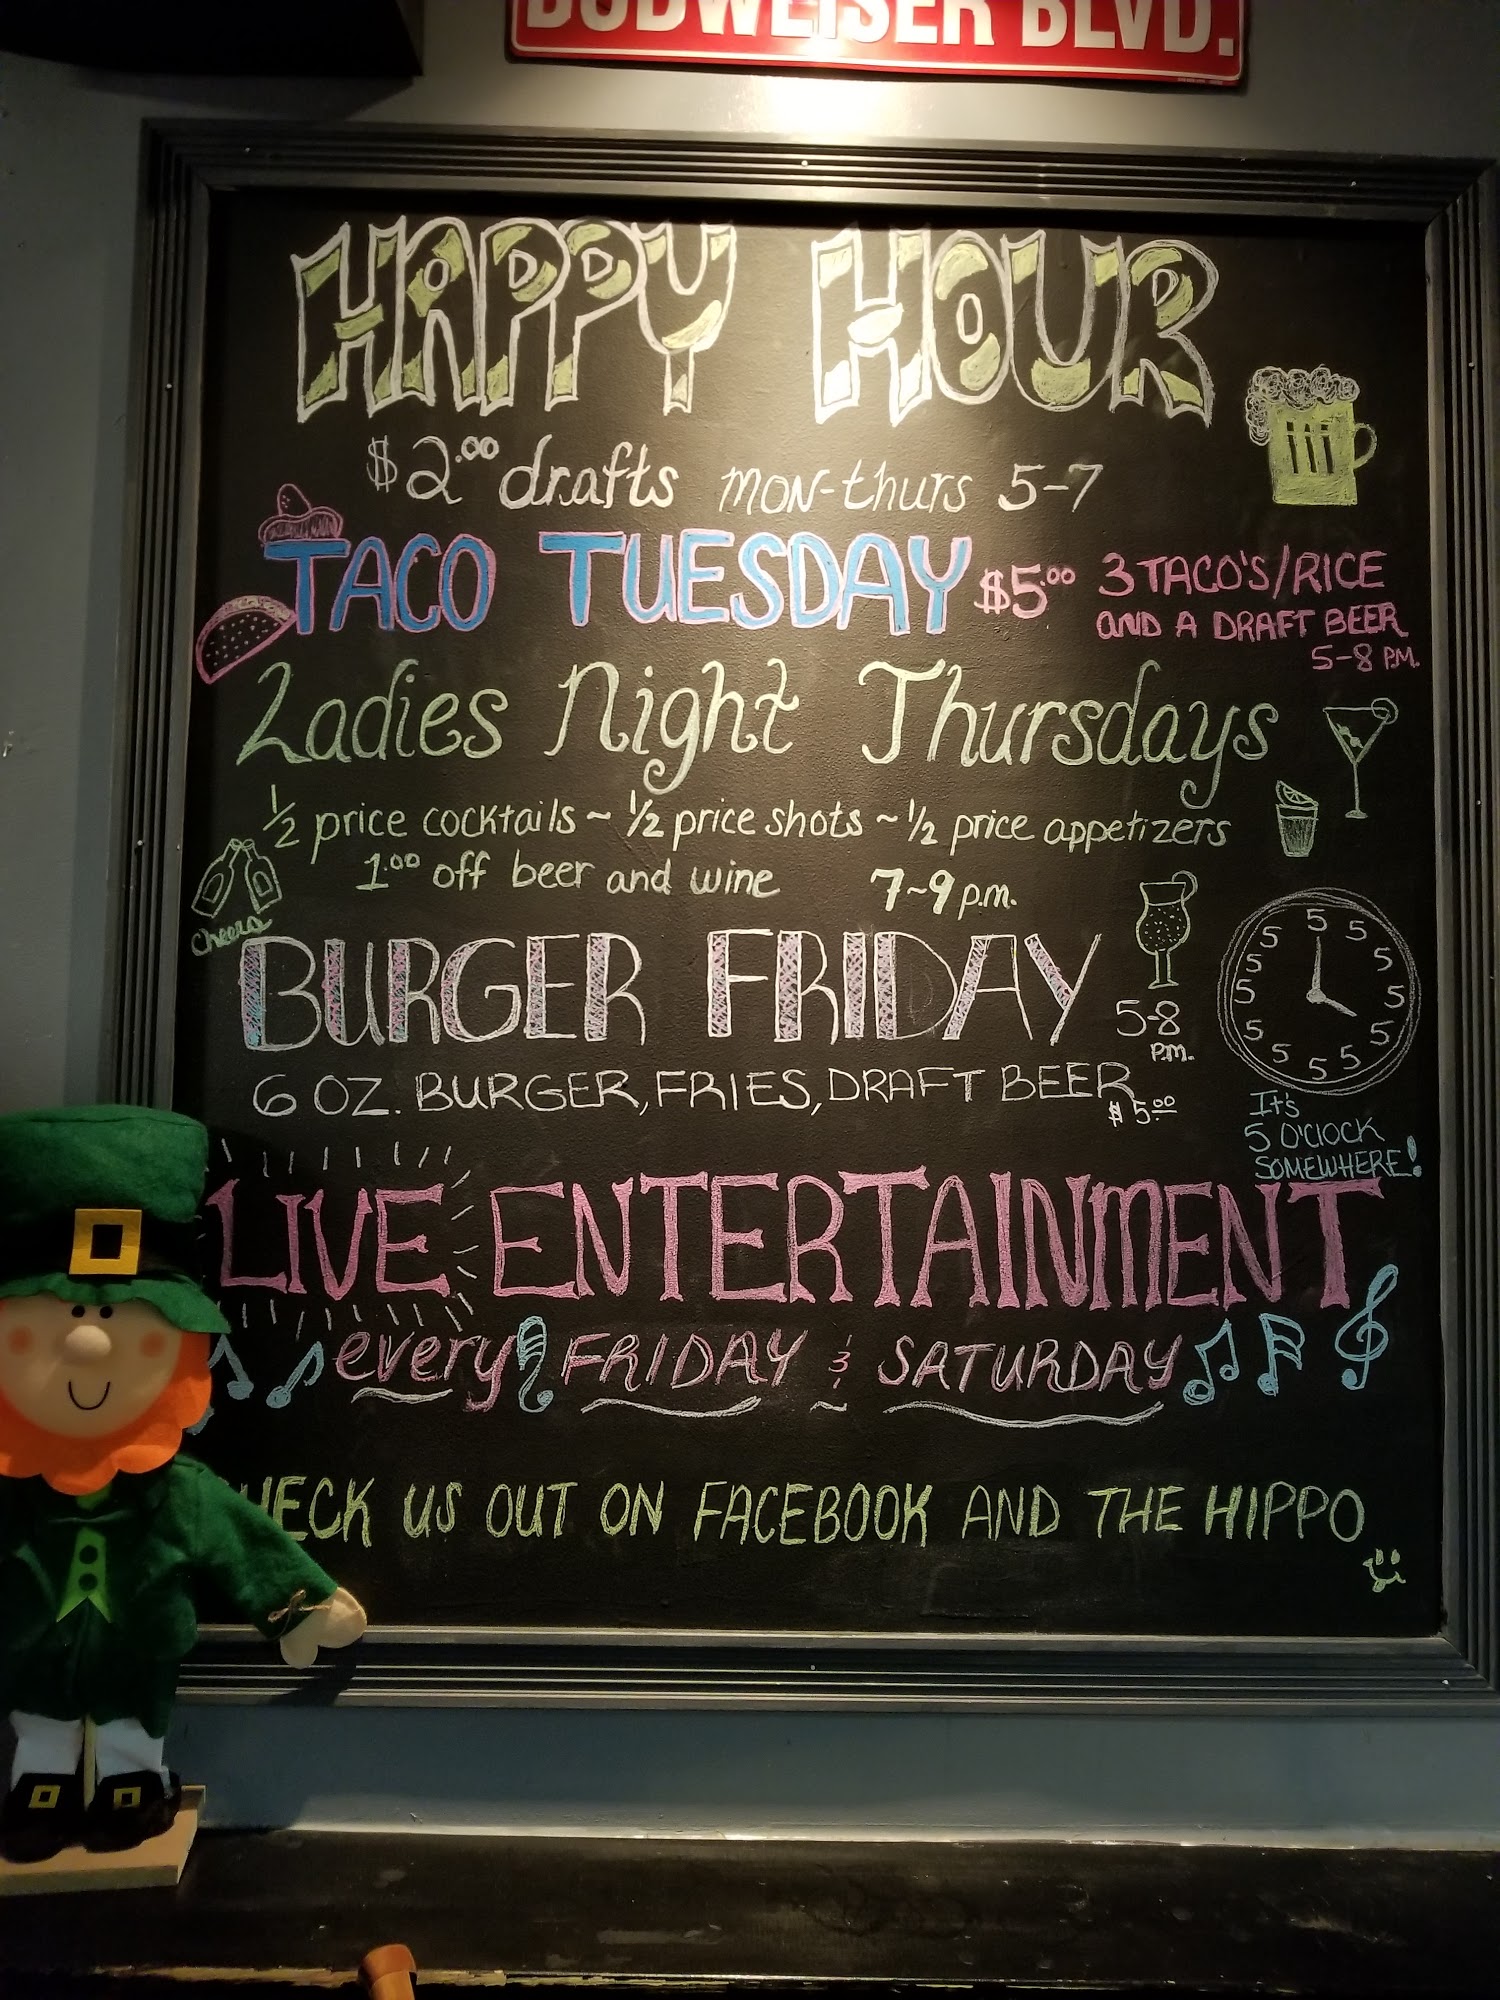 BUDWEISER BLVD.
HAPPY HOUR
$2.00 drafts mon-thurs 5-7
TACO TUESDAY $5.00 3 TACO'S/RICE
AND A DRAFT BEER
5-8 P.M.
Ladies Night Thursdays
1/2 price cocktails ~ 1/2 price shots ~ 1/2 price appetizers
1.00 off beer and wine 7~9 p.m.
Cheers
BURGER FRIDAY 5-8
P.M.
6 OZ. BURGER, FRIES, DRAFT BEER
$5.00
5 5 5 5 5 5 5 5 5 5 5 5
It's
5 O'CLOCK
SOMEWHERE!
LIVE ENTERTAINMENT
every FRIDAY & SATURDAY
HECK US OUT ON FACEBOOK AND THE HIPPO